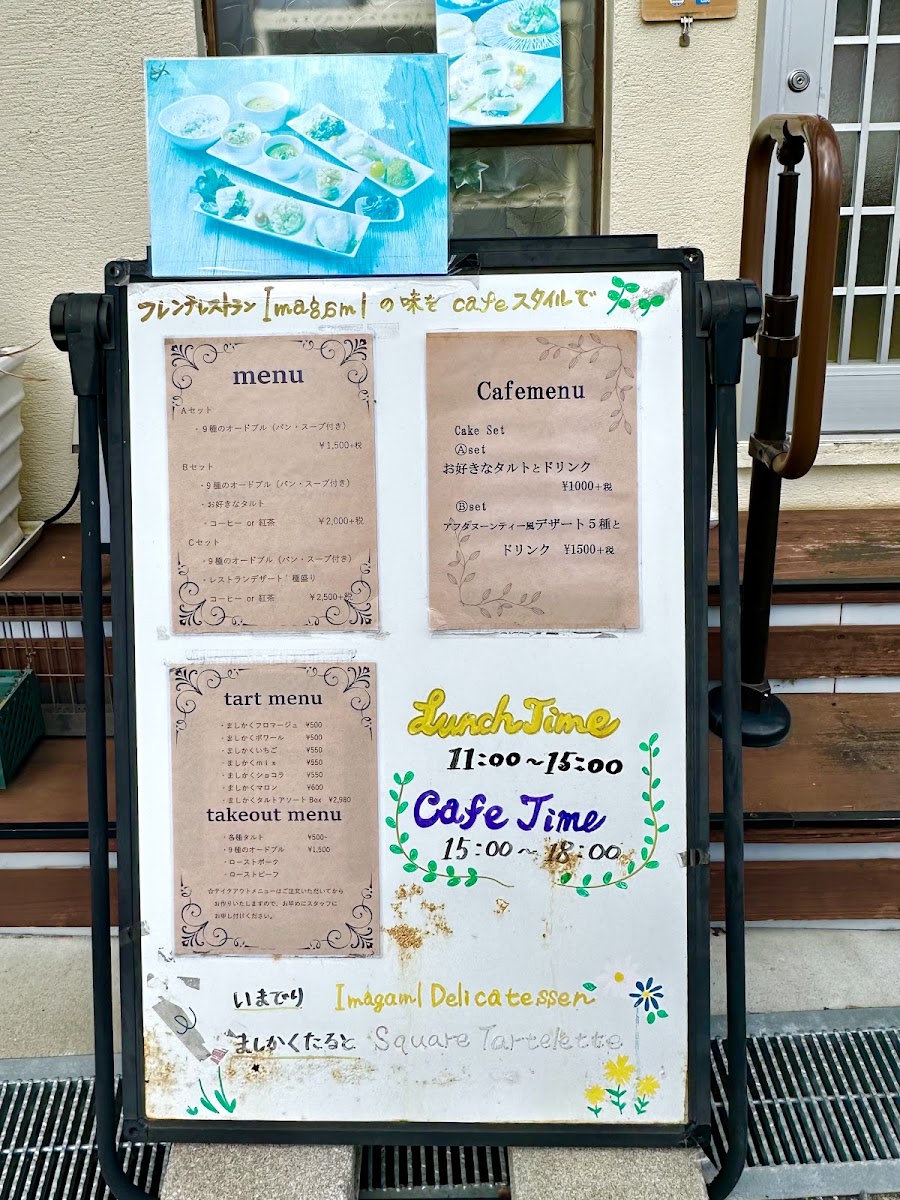 フレンチレストラン Imagami の味を cafe スタイルで
menu
Aセット
・9種のオードブル（パン・スープ付き）
¥1,500+税
Bセット
・9種のオードブル（パン・スープ付き）
・お好きなタルト
・コーヒー or 紅茶 ¥2,000+税
Cセット
・9種のオードブル（パン・スープ付き）
・レストランデザート 種盛り
・コーヒー or 紅茶 ¥2,500+税
Cafemenu
Cake Set
Ⓐset
お好きなタルトとドリンク
¥1000+税
Ⓑset
アフタヌーンティー風デザート5種と
ドリンク ¥1500+税
tart menu
・ましかくフロマージュ ¥500
・ましかくポワール ¥500
・ましかくいちご ¥550
・ましかくmix ¥550
・ましかくショコラ ¥550
・ましかくマロン ¥600
・ましかくタルトアソートBox ¥2,980
takeout menu
・各種タルト ¥500~
・9種のオードブル ¥1,500
・ローストポーク
・ローストビーフ
☆テイクアウトメニューはご注文いただいてから
お作りいたしますので、お早めにスタッフに
お申し付けください。
Lunch Time
11:00～15:00
Cafe Time
15:00～18:00
いまでり Imagami Delicatessen
ましかくたると Square Tartelette